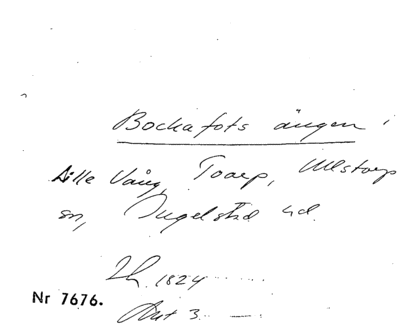 Bockafots ängen i
Lille Vång, Toarp, Ullstorps
sn, Ingelstad hd.
Lh. 1824
Nr 7676.
Akt 3.